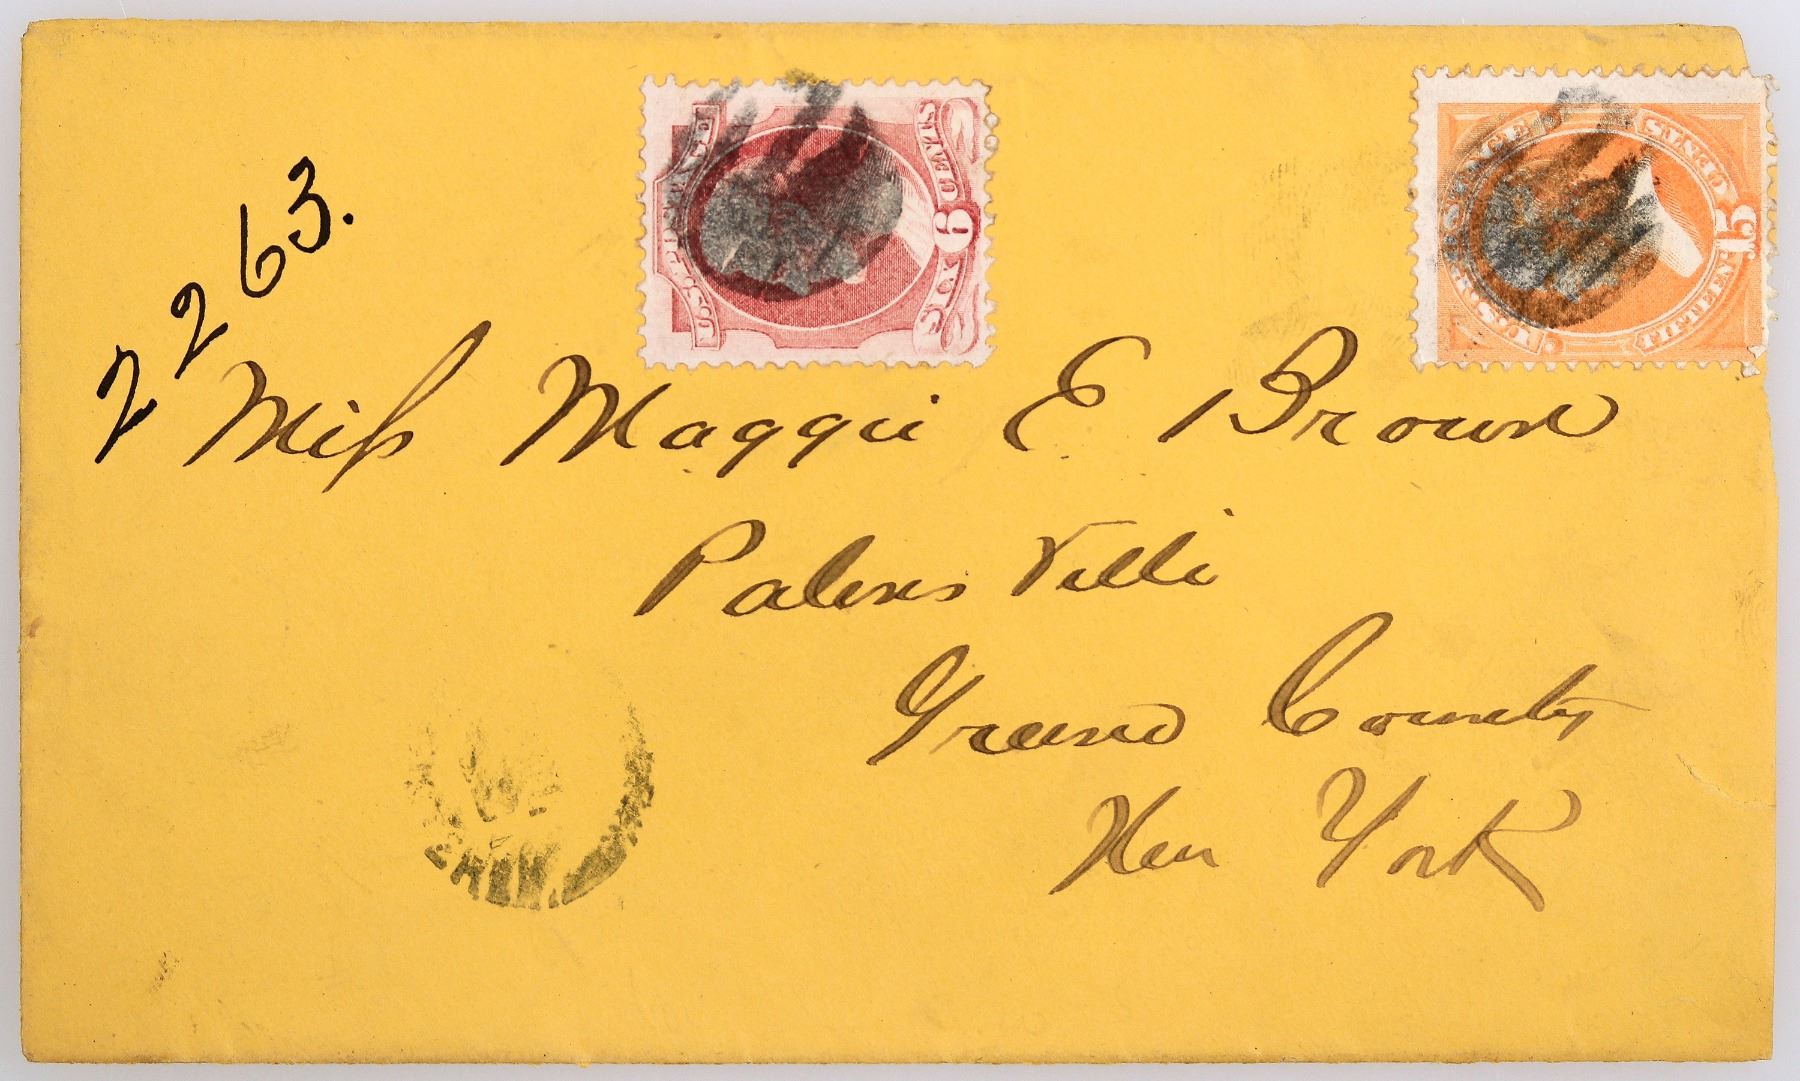 2 2 6 3.
U.S. POSTAGE
SIX 6 CENTS
U.S. POSTAGE
FIFTEEN 15 CENTS
Miss Maggie E Brown
Palens Ville
Greene County
New York